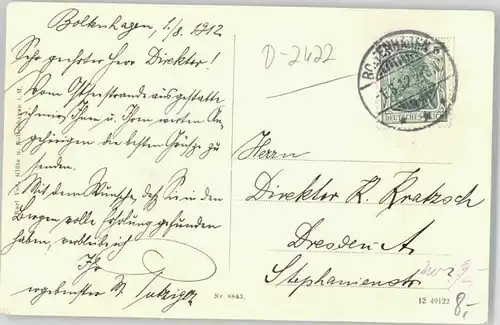 Boltenhagen, 1./8. 1912
Sehr geehrter Herr Direktor!
Vom Ostseestrande aus gestatte
ich mir Ihnen u. Ihren werten An-
gehörigen die besten Grüße zu
senden.
Mit dem Wunsche, daß Sie in den
Bergen volle Erholung gefunden
haben, verbleibe ich
Ihr
ergebenster
D-2422
BOLTENHAGEN
DEUTSCHES REICH
Herrn
Direktor K. Kratzsch
Dresden-A.
Stephanienstr.
Nr. 8847.
12 49122
8,-